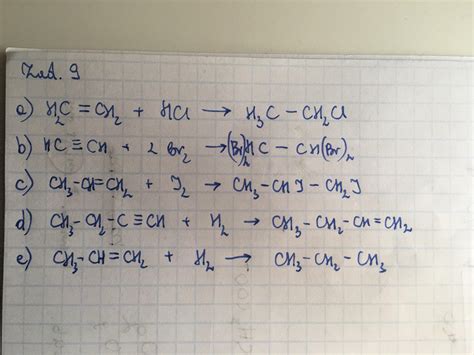 Zad. 9
a) H₂C = CH₂ + HCl → H₃C – CH₂Cl
b) HC ≡ CH + 2 Br₂ → (Br)₂HC – CH(Br)₂
c) CH₃-CH=CH₂ + I₂ → CH₃-CHI-CH₂I
d) CH₃-CH₂-C ≡ CH + H₂ → CH₃-CH₂-CH=CH₂
e) CH₃-CH=CH₂ + H₂ → CH₃-CH₂-CH₃